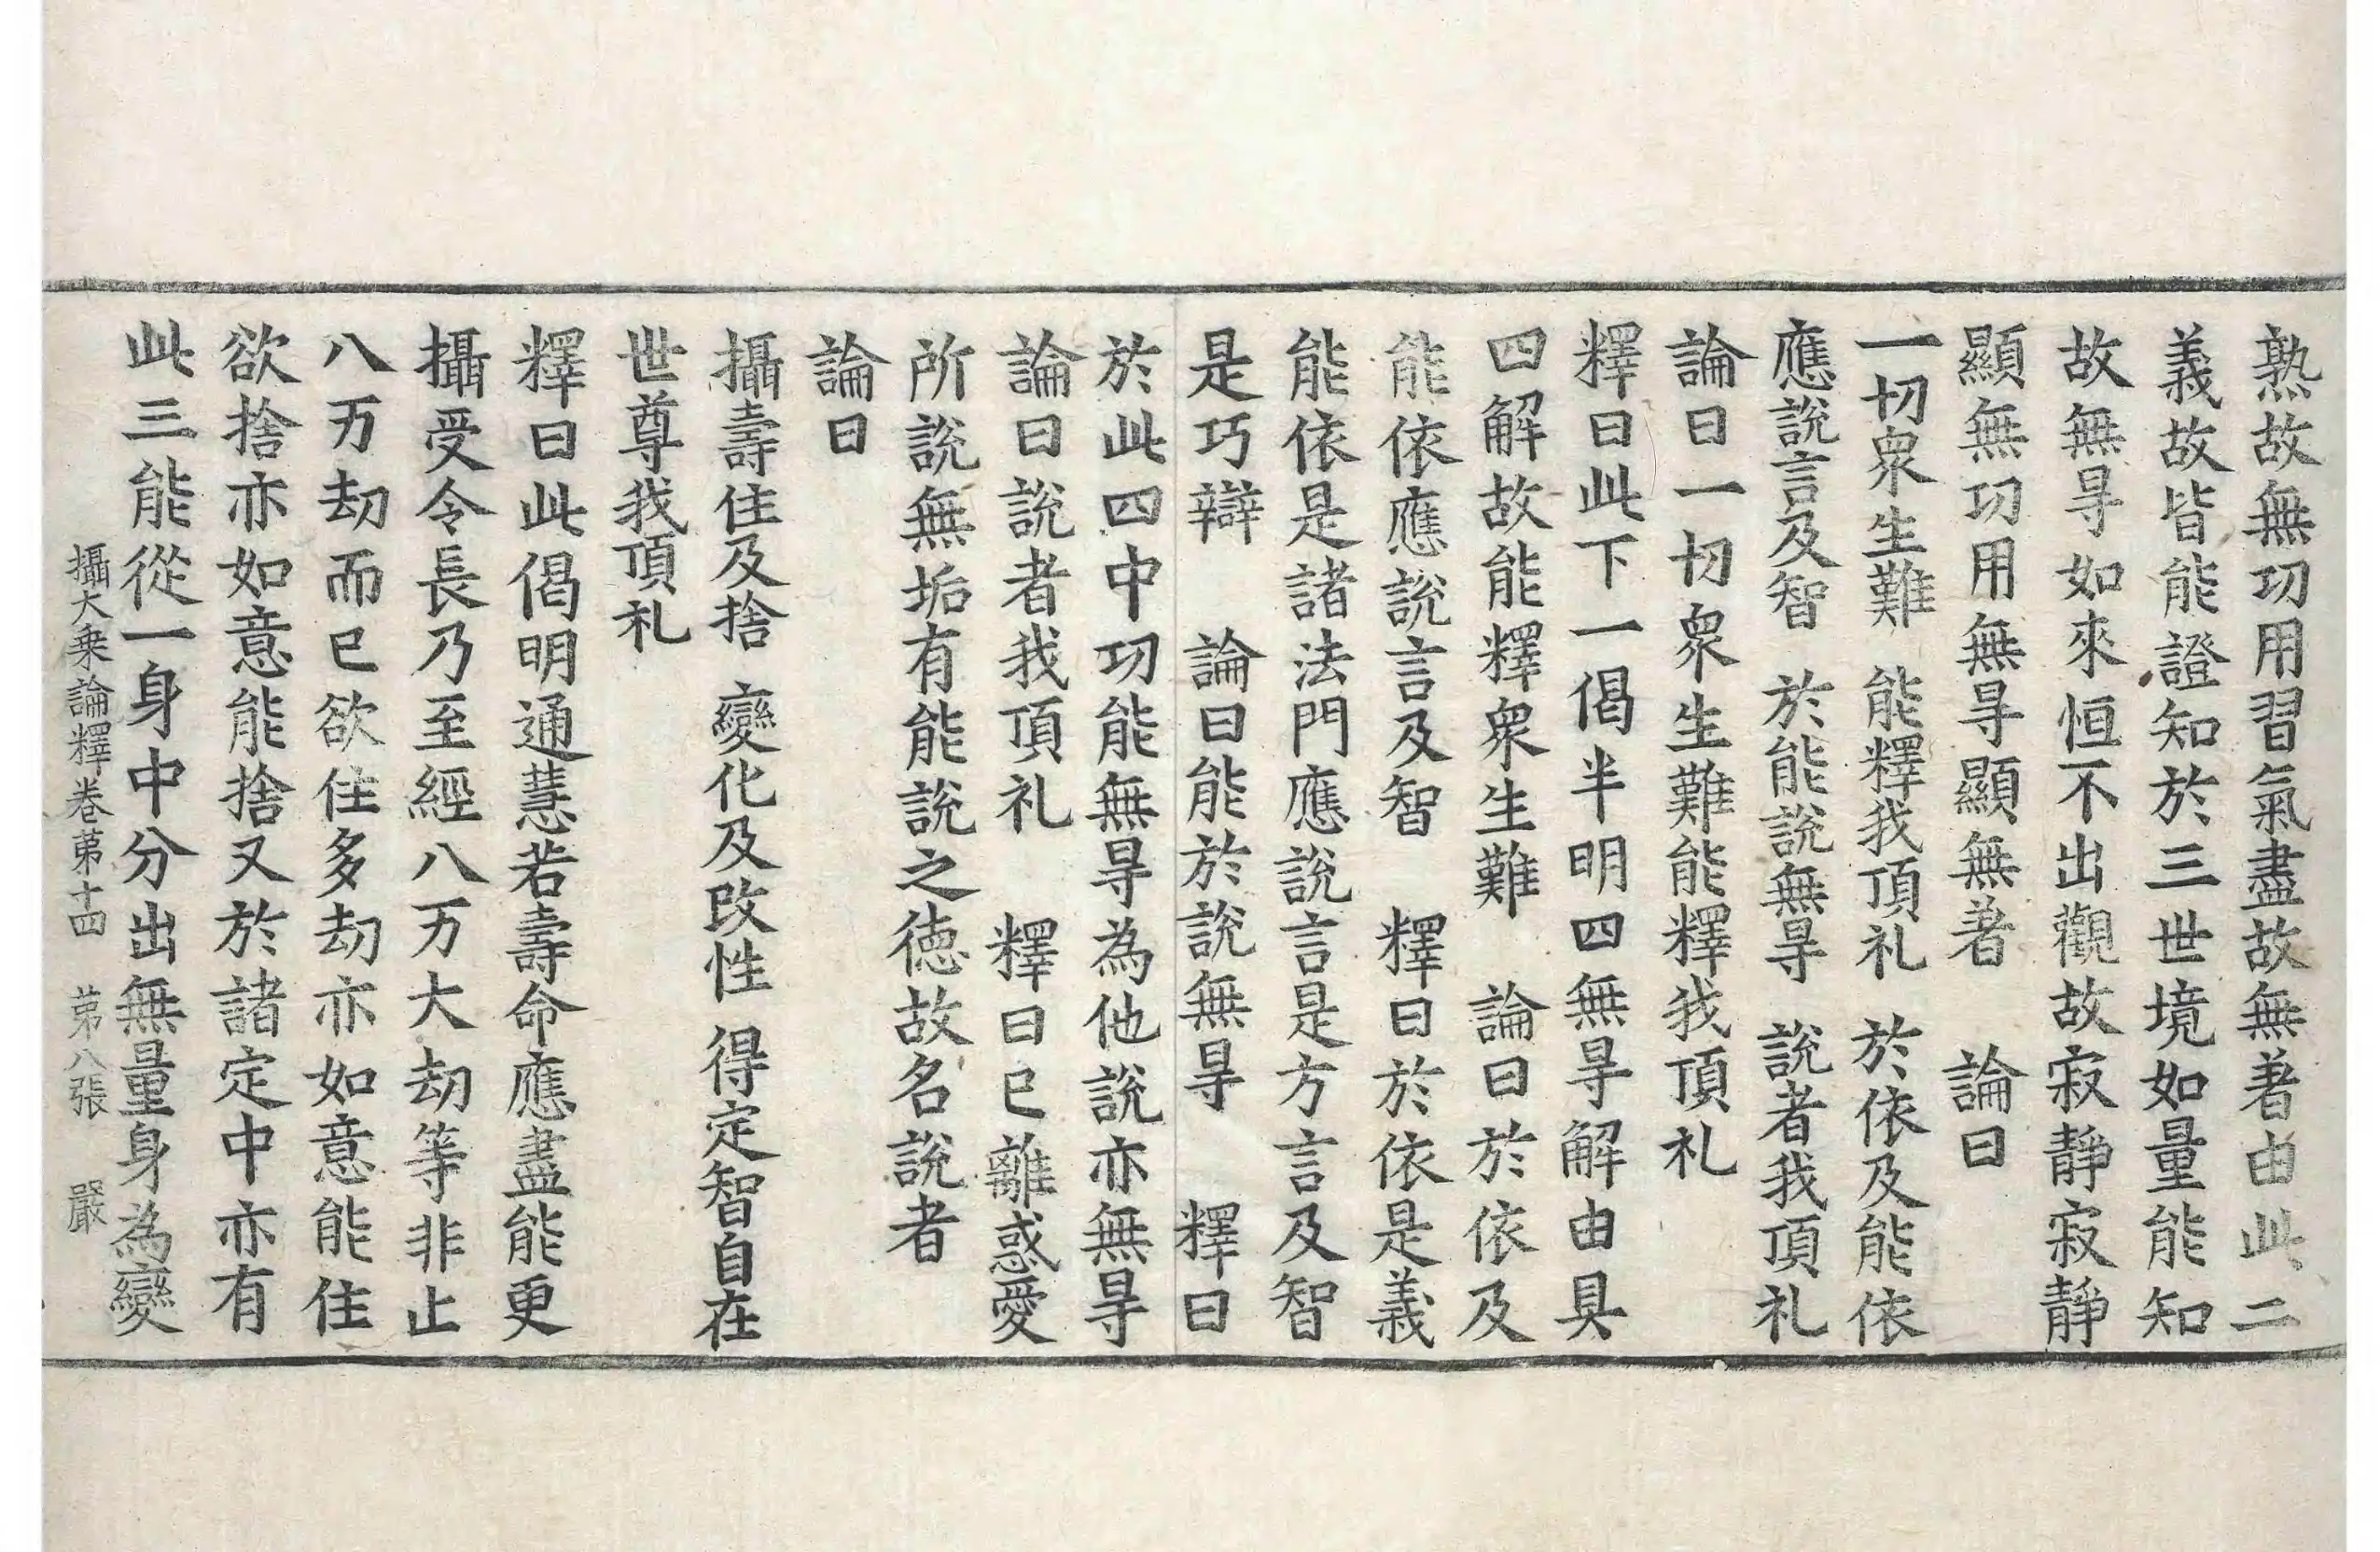 熟故無功用習氣盡故無著由此二
義故皆能證知於三世境如量能知
故無㝵如來恒不出觀故寂靜寂靜
顯無功用無㝵顯無著　論曰
一切衆生難　能釋我頂礼　於依及能依
應說言及智　於能說無㝵　說者我頂礼
論曰一切衆生難能釋我頂礼
釋曰此下一偈半明四無㝵解由具
四解故能釋衆生難　論曰於依及
能依應說言及智　釋曰於依是義
能依是諸法門應說言是方言及智
是巧辯　論曰能於說無㝵　釋曰
於此四中功能無㝵為他說亦無㝵
論曰說者我頂礼　釋曰已離惑愛
所說無垢有能說之德故名說者
論曰
攝壽住及捨　變化及改性　得定智自在
世尊我頂礼
釋曰此偈明通慧若壽命應盡能更
攝受令長乃至經八万大劫等非止
八万劫而已欲住多劫亦如意能住
欲捨亦如意能捨又於諸定中亦有
此三能從一身中分出無量身為變
攝大乗論釋卷苐十四　苐八張　嚴